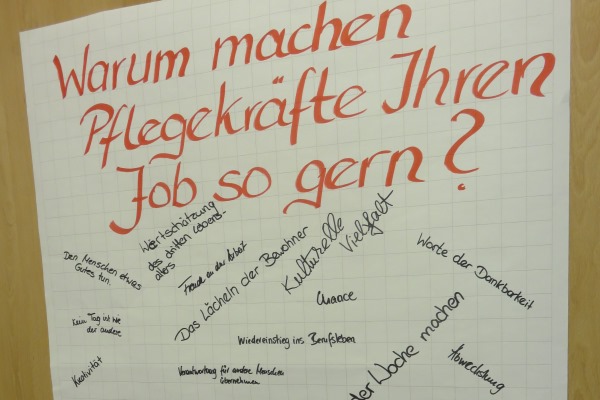 Warum machen
Pflegekräfte Ihren
Job so gern?
Wertschätzung
des dritten Lebens-
alters
Den Menschen etwas
Gutes tun.
Freude an der Arbeit
Das Lächeln der Bewohner
Kulturelle
Vielfalt
Worte der Dankbarkeit
Chance
Kein Tag ist wie
der andere
Wiedereinstieg ins Berufsleben
der Woche machen
Abwechslung
Kreativität
Verantwortung für andere Menschen
übernehmen